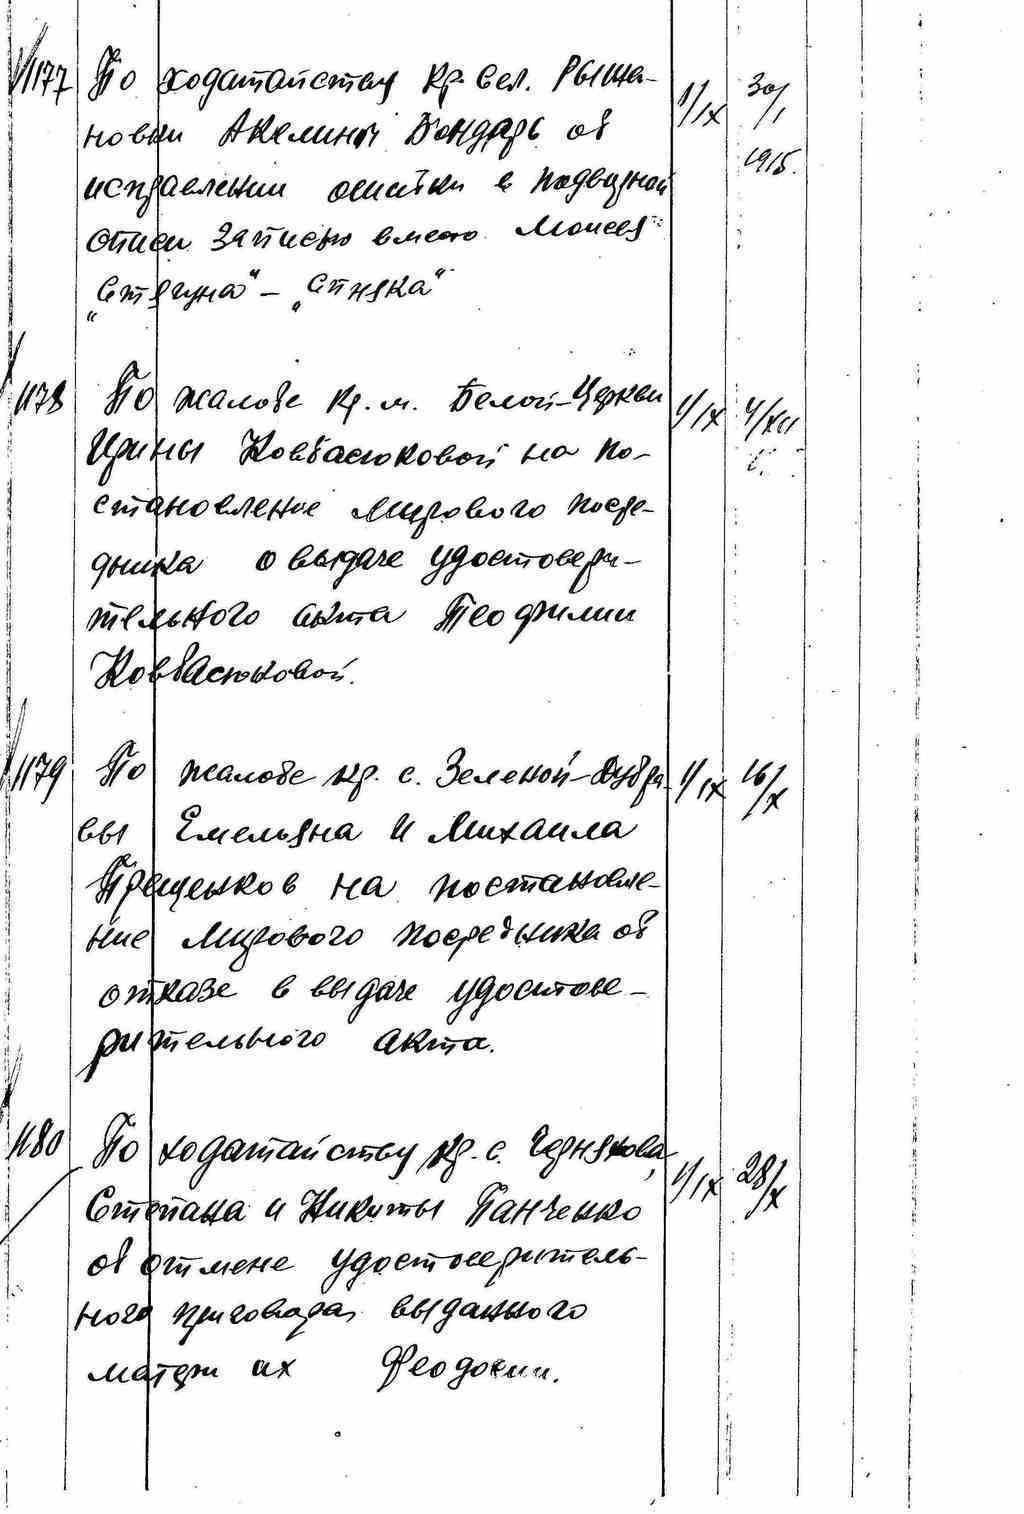 1177 По ходатайству кр. вел. Рыжа- 1/IX 30/I
новки Акелины Бондарь об 1915.
исправлении ошибки в подворной
описи записью вместо Моисея
„Стягуна“ – „Спняка“
1178 По жалобе кр. м. Белой-Церкви 1/IX 4/XII
Ирины Ковбасюковой на по-
становление Мирового посре-
дника о выдаче удостовери-
тельного акта Теофилии
Ковбасюковой.
1179 По жалобе кр. с. Зеленой-Дубра- 1/IX 16/X
вы Емельяна и Михаила
Прещенков на постановле-
ние Мирового посредника об
отказе в выдаче удостове-
рительного акта.
1180 По ходатайству кр. с. Чернякова, 1/IX 28/X
Степана и Никиты Панченко
об отмене удостоверитель-
ного приговора, выданного
матери их Феодосии.